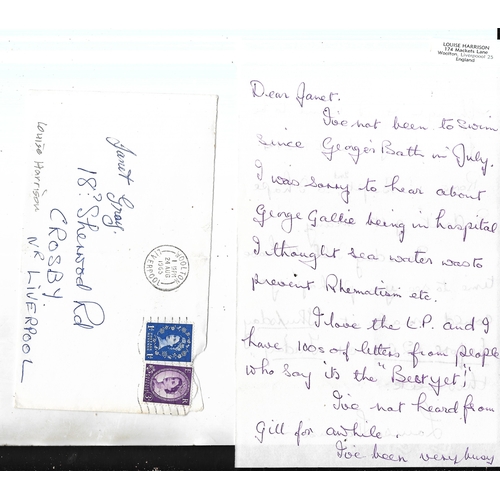 LOUISE HARRISON
174 Mackets Lane
Woolton, Liverpool 25
England
Dear Janet.
I've not been to swim
since George's Bath in July.
I was sorry to hear about
George Gallie being in hospital
I thought sea water was to
prevent Rhematism etc.
I love the L.P. and I
have 100s of letters from people
who say it's the "Best yet".
I've not heard from
Gill for awhile.
I've been very busy
Louise Harrison
Janet Gray.
18? Sherwood Rd
CROSBY
NR LIVERPOOL
WOOLTON
LIVERPOOL